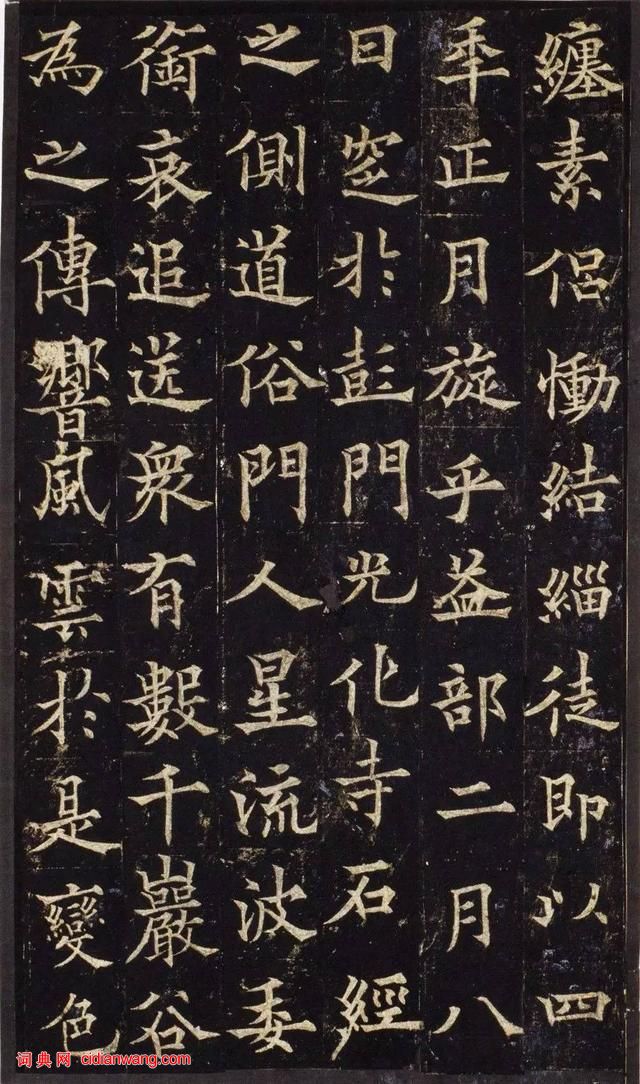 纏素侶慟結緇徒即以四
年正月旋乎益部二月八
日窆於彭門光化寺石經
之側道俗門人星流波委
銜哀追送衆有數千巖谷
為之傳響風雲於是變色
词典网 cidianwang.com